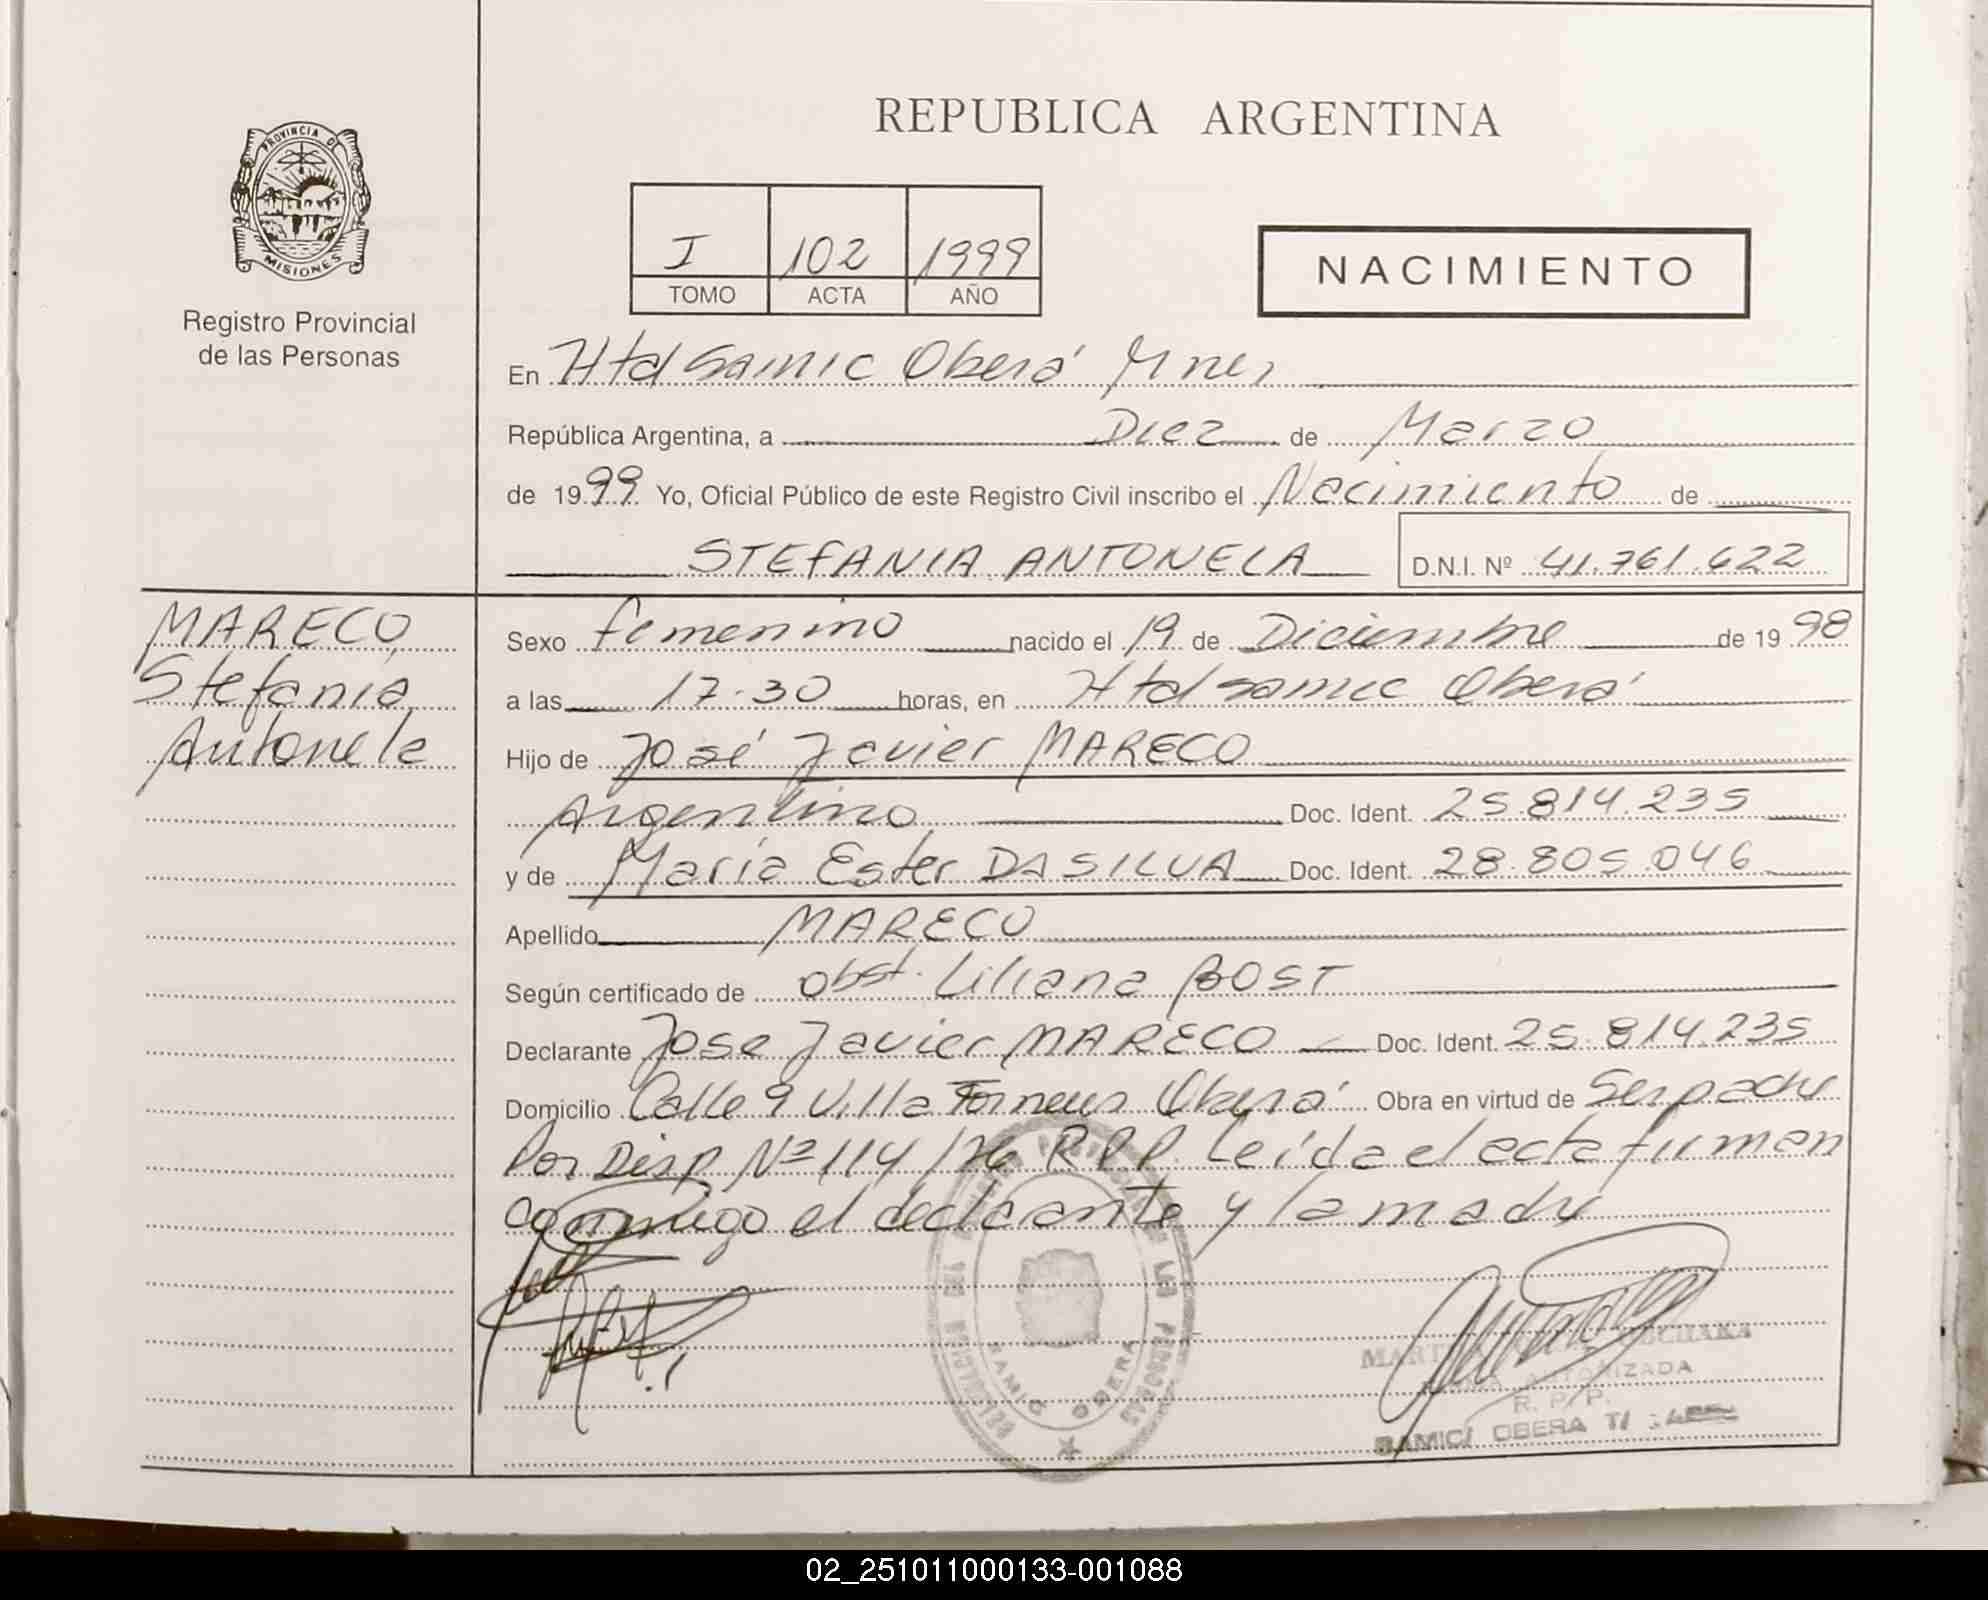 REPUBLICA ARGENTINA
PROVINCIA DE
MISIONES
Registro Provincial
de las Personas
I 102 1999
TOMO ACTA AÑO
NACIMIENTO
En Htal Samic Oberá Mnes
República Argentina, a Diez de Marzo
de 1999 Yo, Oficial Público de este Registro Civil inscribo el Nacimiento de
STEFANIA ANTONELA D.N.I. Nº 41.761.622
MARECO
Stefania
Antonela
Sexo femenino nacido el 19 de Diciembre de 1998
a las 17.30 horas, en Htal samic Oberá
Hijo de José Javier MARECO
Argentino Doc. Ident. 25.814.235
y de María Ester DA SILVA Doc. Ident. 28.805.046
Apellido MARECO
Según certificado de Obst. Liliana BOST
Declarante Jose Javier MARECO Doc. Ident. 25.814.235
Domicilio Calle 9 Villa Oberá Obra en virtud de Ser padre
Por Disp Nº 114/76 R.P.P. Leída el acta firman
conmigo el declarante y la madre
SAMIC OBERA
AUTORIZADA
R. P. P.
SAMIC OBERA
02_251011000133-001088